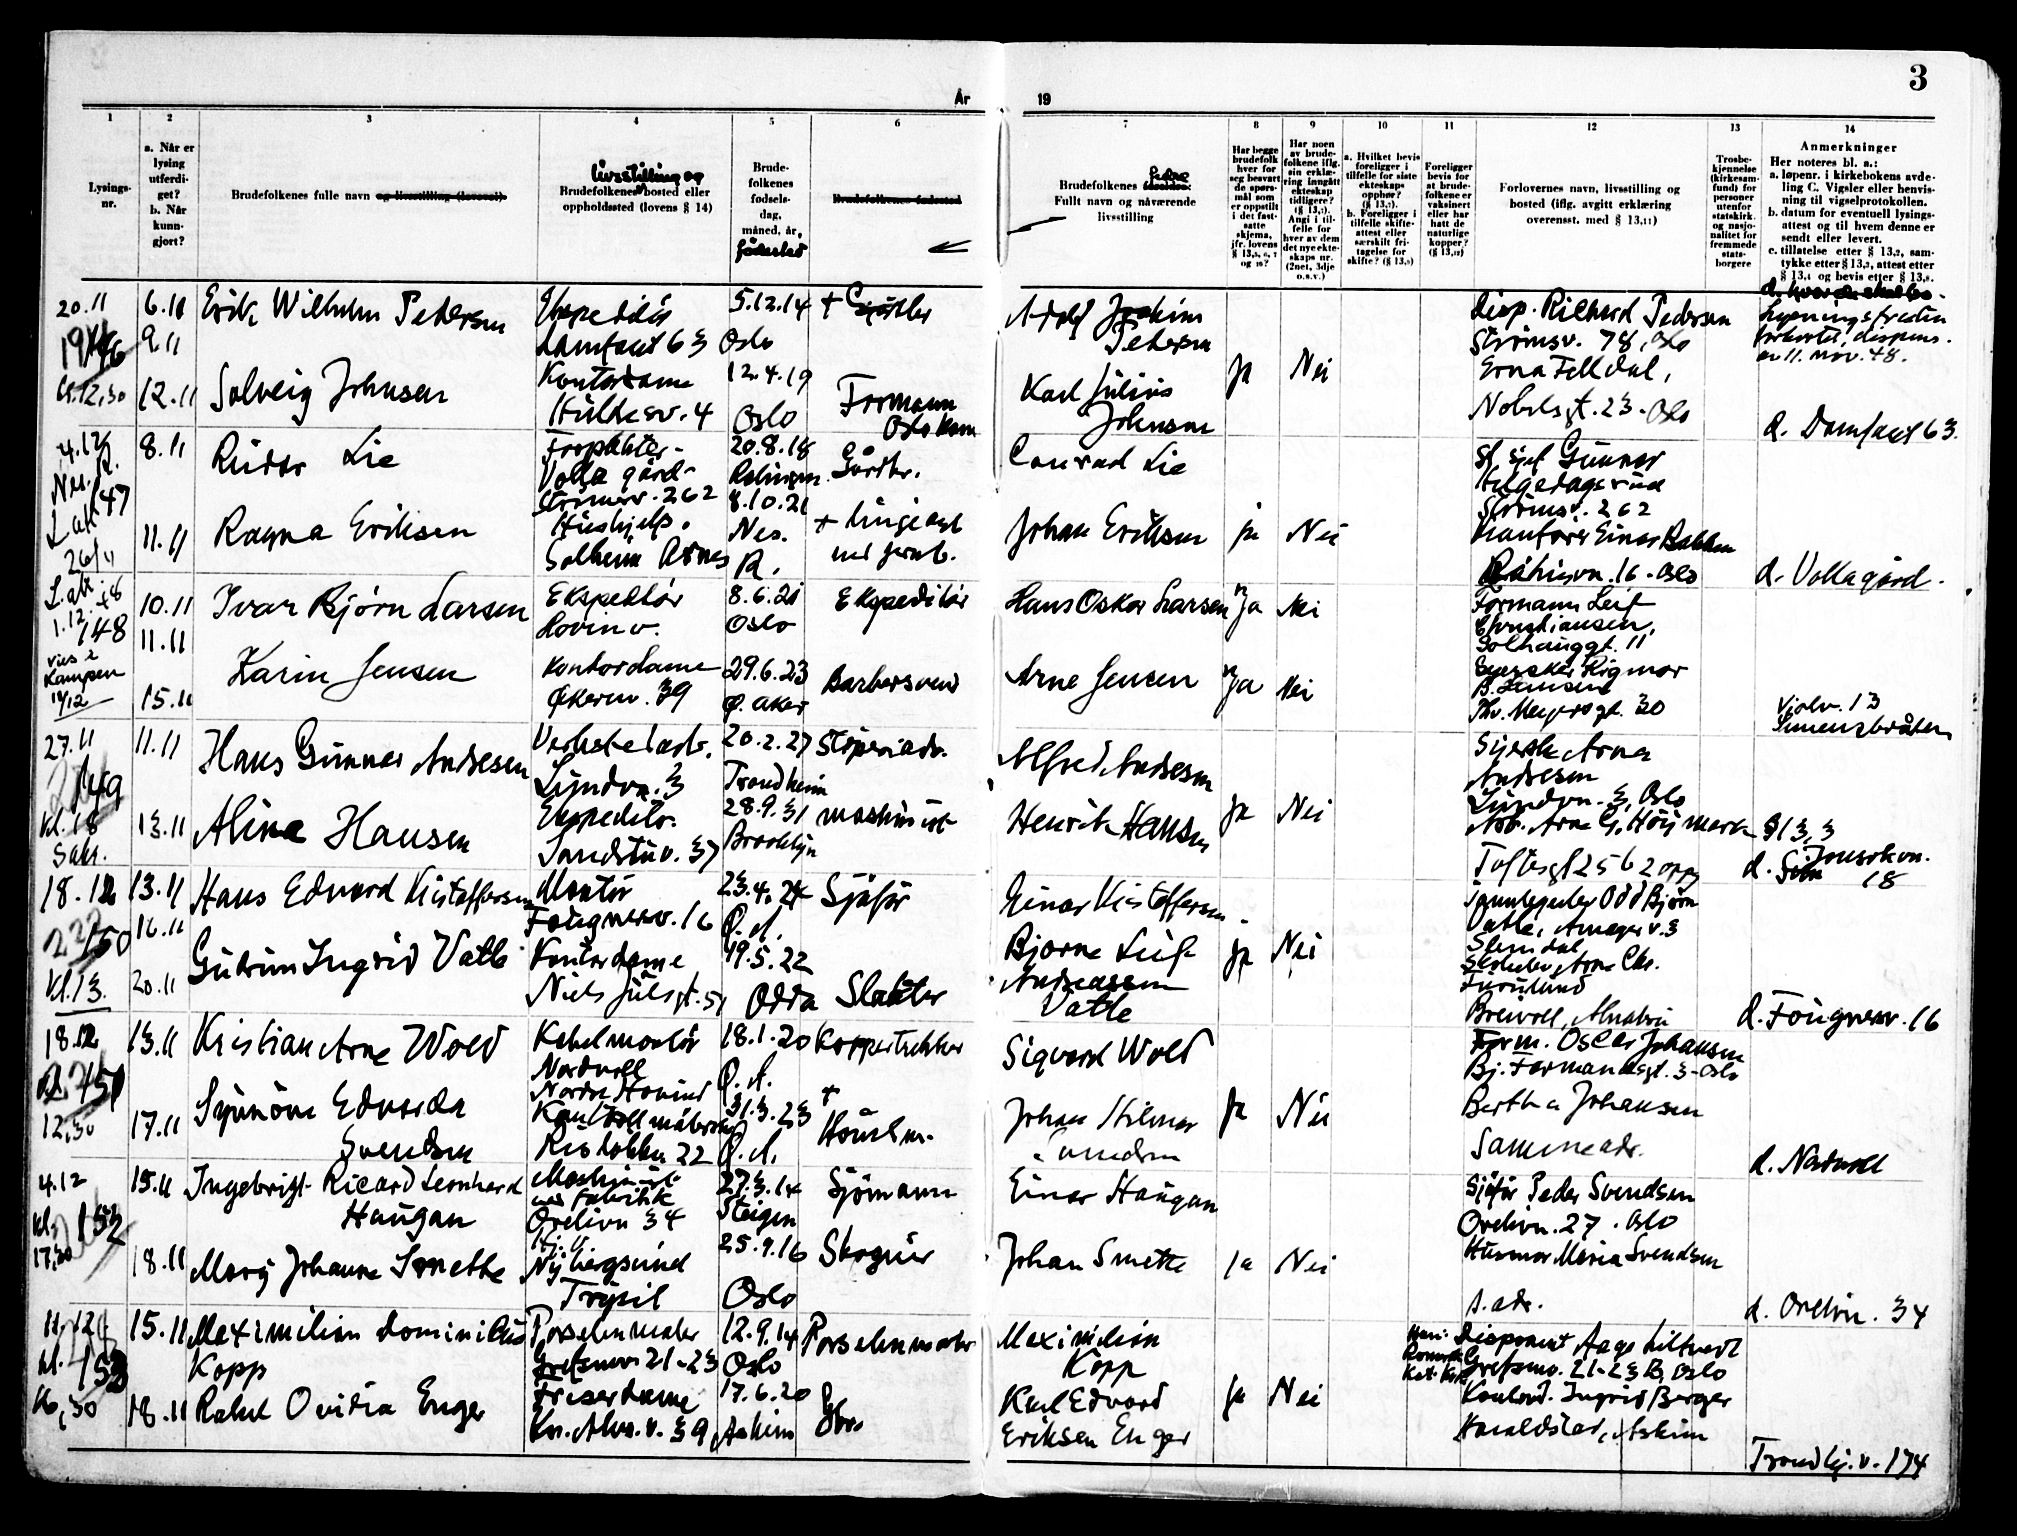 3
År
19
1
2
3
4
5
6
7
8
9
10
11
12
13
14
Lysings-
nr.
a. Når er
lysing
utferdi-
get?
b. Når
kunn-
gjort?
Brudefolkenes fulle navn og livsstilling (lovens)
livsstilling og
Brudefolkenes bosted eller
oppholdssted (lovens § 14)
Brude-
folkenes
fødsels-
dag,
måned, år,
fødested
Brudefolkenes fødested
Fedre
Brudefolkenes foreldre:
Fullt navn og nåværende
livsstilling
Har begge
brudefolk
hver for
seg besvart
de spørs-
mål som
er oppstilt
i det fast-
satte
skjema,
jfr. lovens
Har noen
av brude-
folkene iflg.
sin erklæ-
ring inngått
ekteskap
tidligere?
(§ 13,7).
Angi i til-
felle for
hver av dem
det nye ekte-
skaps nr.
(2net, 3dje
o.s.v.)
a. Hvilket bevis
foreligger i
tilfelle for siste
ekteskaps
ophør?
(§ 13,7).
b. Foreligger i
tilfelle skifte-
attest eller
særskilt fri-
tagelse for
skifte? (§ 13,8)
Foreligger
bevis for
at brude-
folkene er
vaksinert
eller har
hatt de
naturlige
kopper?
(§ 13,12)
Forlovernes navn, livsstilling og
bosted (iflg. avgitt erklæring
overensst. med § 13,11)
Trosbe-
kjennelse
(kirkesam-
fund) for
personer
utenfor
statskirk.
og nasjo-
nalitet for
fremmede
stats-
borgere
Anmerkninger
Her noteres bl. a.:
a. løpenr. i kirkebokens avde-
ling C. Vigsler eller henvis-
ning til vigselprotokollen.
b. datum for eventuell lysings-
attest og til hvem denne er
sendt eller levert.
c. tillatelse etter § 13,2, sam-
tykke etter § 13,3, attest etter
§ 13,4 og bevis etter § 13,8.
20.11
146
kl.12,30
6.11
9.11
12.11
Erik Wilhelm Pedersen
Ekspeditør
63
5.12.14
Oslo
Adolf Joakim
Pedersen
Disp. Rikhard Pedersen
Strømsv. 78, Oslo
Lysningsfristen
forkortet, dispens.
av 11. nov. 48.
Solveig Johnsen
Kontordame
Hüldesv. 4
12.4.19
Oslo
Formann
Oslo kom
Karl Julius
Johnsen
Ja
Nei
Erna Felldal,
Nobelsgt. 23. Oslo
63.
4.12
Nes. R.
L.att
147
26/11
8.11
11.11
Reidar Lie
Volla gård
Strømsv. 262
20.8.18
Gårdbr.
Conrad Lie
Gunnar
Strømsv. 262
Ragna Eriksen
Hushjelp.
Solheim Årnes
8.10.21
Nes.
R.
Johan Eriksen
ja
Nei
Einar Bakken
16. Oslo
d. Vollagård.
L.att.
1.12.48
148
vies i
Kampen
10.11
11.11
15.11
Ivar Bjørn Larsen
Ekspeditør
Hovinv.
8.6.21
Oslo
Ekspeditør
Hans Oskar Larsen
Ja
Nei
Formann Leif
Christiansen,
Solhauggt. 11
Karin Jensen
Kontordame
Økernv. 39
29.6.23
Ø. Aker
Barbersvend
Arne Jensen
Ja
Nei
Rigmor
B. Jensen
Thv. Meyersgt. 30
Violv. 13
Simensbråten
27.11
149
kl. 18
sakr.
11.11
13.11
Hans Gunnar Andresen
Lundvn. 3
20.2.27
Trondheim
Støperiarb.
Alfred Andresen
Arna
Andresen
Lundvn. 3, Oslo
Aline Hansen
Ekspeditr.
Sandstuv. 37
28.9.31
Brooklyn
maskinist
Henrik Hansen
Ja
Nei
Arb. Arne G. Høymark
Toftesgt 25 b 2 oppg
§ 13,3
18
18.12
150
kl.13.
13.11
16.11
20.11
Hans Edvard Kristoffersen
Montør
Fougnerv. 16
23.4.24
Ø.A.
Sjåfør
Einar Kristoffersen
Odd Bjørn
Vatle, Amager v. 3
Gudrun Ingrid Vatle
Kontordame
Niels Juelsgt. 51
19.5.22
Odda
Slakter
Bjarne Leif
Andreassen
Vatle
ja
Nei
Arne Chr.
Furulund
Breivoll, Alnabru
d. Fougnerv. 16
18.12
kl. 151
12,30
13.11
17.11
Kristian Arne Wold
Kabelmontør
Nordvoll
18.1.20
Ø.A.
Koppertrekker
Sigvard Wold
Form. Oscar Johansen
Bj. Farmannsgt. 3-Oslo
Synnöve Edvarda
Svendsen
22
31.3.23
Ø.A.
Johan Hilmar
Svendsen
Ja
Nei
Bertha Johansen
Samme adr.
d. Nordvoll
4.12
kl. 152
17,30
15.11
18.11
Ingebrigt Ricard Leonhard
Haugan
Maskinist
ved fabrikk
Orelivn 34
27.3.14
Steigen
Sjömann
Einar Haugan
Sjåfør Peder Svendsen
Orelivn. 27. Oslo
Mary Johanne Smette
Nybergsund
Trysil
25.9.16
Oslo
Johan Smette
Ja
Nei
Husmor Maria Svendsen
s. adr.
d. Orelivn. 34
11.12
kl. 153
15.11
18.11
Maximilian Dominikus
Kopp
Porselenmaler
Grefsenv. 21-23
12.9.14
Oslo
Porselenmaler
Maximilian
Kopp
Disponent Aage Liltvedt
Grefsenv. 21-23 B, Oslo
Rakel Ovidia Enger
Friserdame
39
17.6.20
Askim
Gbr.
Karl Edvard
Eriksen Enger
Ja
Nei
Kontord. Ingrid Berger
Haraldstad, Askim
Trondhj.v. 174